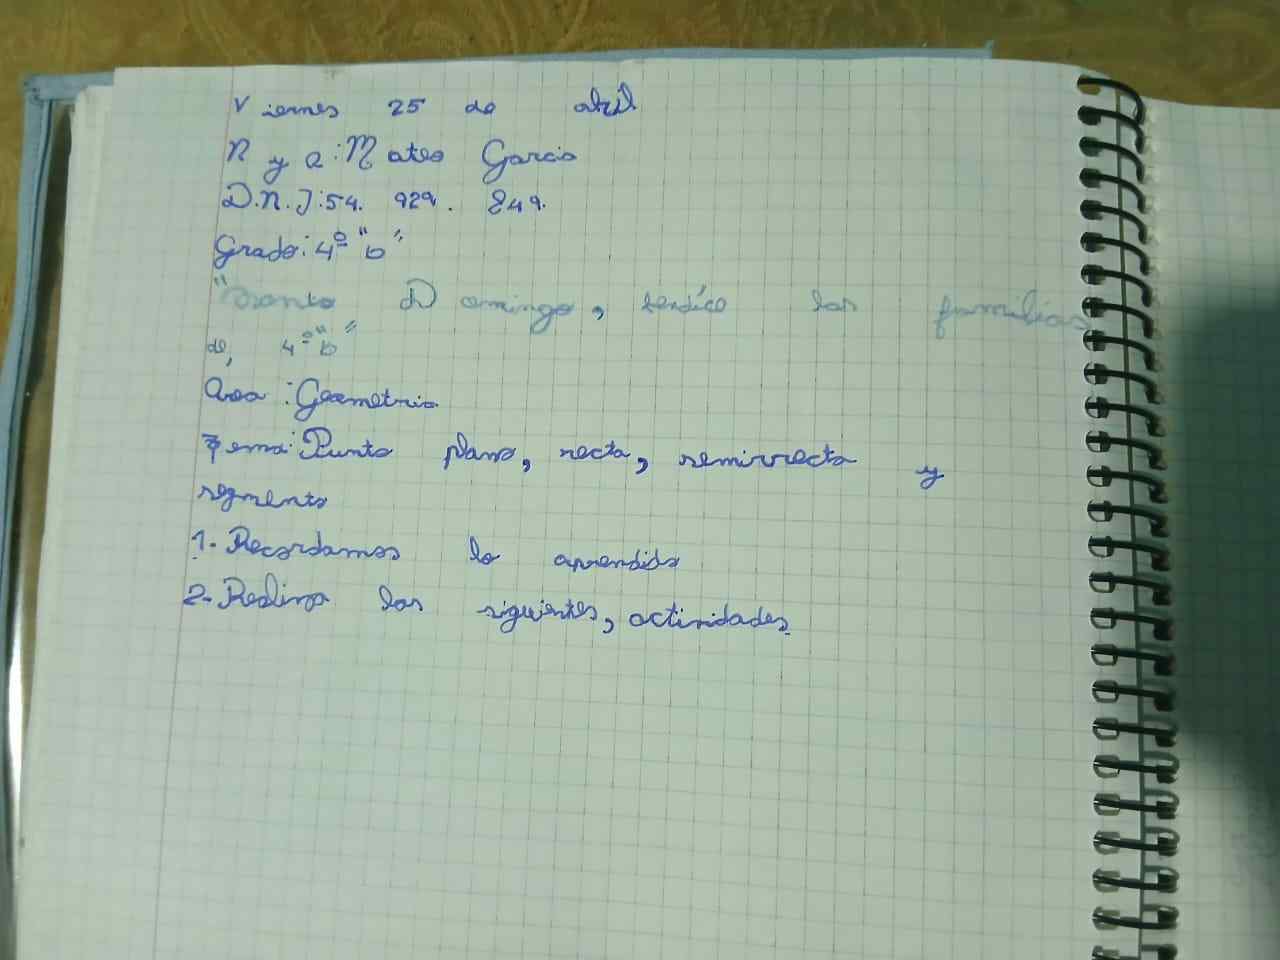 Viernes 25 de abril
N y A: Mateo Garcia
D.N.I: 54. 929. 849.
Grado: 4º "b"
"Santo Domingo, bendice las familias
de, 4º "b"
Área: Geometria
Tema: Punto plano, recta, semirrecta y
segmento
1- Recordamos lo aprendido
2- Realiza las siguientes, actividades.